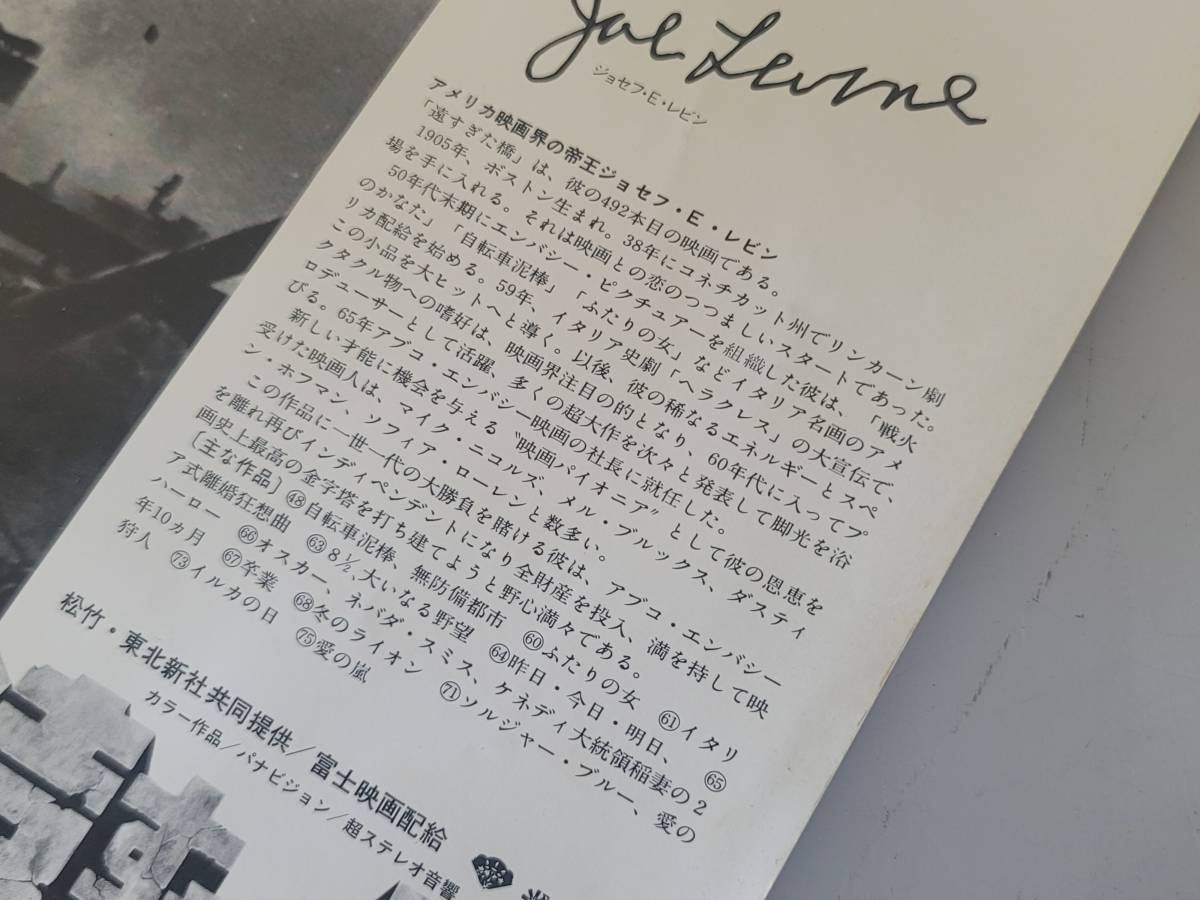 Joe Levine
ジョセフ・E・レビン
アメリカ映画界の帝王ジョセフ・E・レビン
「遠すぎた橋」は、彼の492本目の映画である。
1905年、ボストン生まれ。38年にコネチカット州でリンカーン劇
場を手に入れる。それは映画との恋のつつましいスタートであった。
50年代末期にエンバシー・ピクチュアーを組織した彼は、「戦火
のかなた」「自転車泥棒」「ふたりの女」などイタリア名画のアメ
リカ配給を始める。59年、イタリア史劇「ヘラクレス」の大宣伝で、
この小品を大ヒットへと導く。以後、彼の稀なるエネルギーとスペ
クタクル物への嗜好は、映画界注目の的となり、60年代に入ってプ
ロデューサーとして活躍、多くの超大作を次々と発表して脚光を浴
びる。65年アブコ・エンバシー映画の社長に就任した。
新しい才能に機会を与える〝映画パイオニア〟として彼の恩恵を
受けた映画人は、マイク・ニコルズ、メル・ブルックス、ダスティ
ン・ホフマン、ソフィア・ローレンと数多い。
この作品に一世一代の大勝負を賭ける彼は、アブコ・エンバシー
を離れ再びインディペンデントになり全財産を投入、満を持して映
画史上最高の金字塔を打ち建てようと野心満々である。
〔主な作品〕㊽自転車泥棒、無防備都市 60ふたりの女 61イタリ
ア式離婚狂想曲 63 8½、大いなる野望 64昨日・今日・明日、 65
ハーロー 66オスカー、ネバダ・スミス、ケネディ大統領稲妻の2
年10カ月 67卒業 68冬のライオン 71ソルジャー・ブルー、愛の
狩人 73イルカの日 75愛の嵐
松竹・東北新社共同提供/富士映画配給
カラー作品/パナビジョン/超ステレオ音響